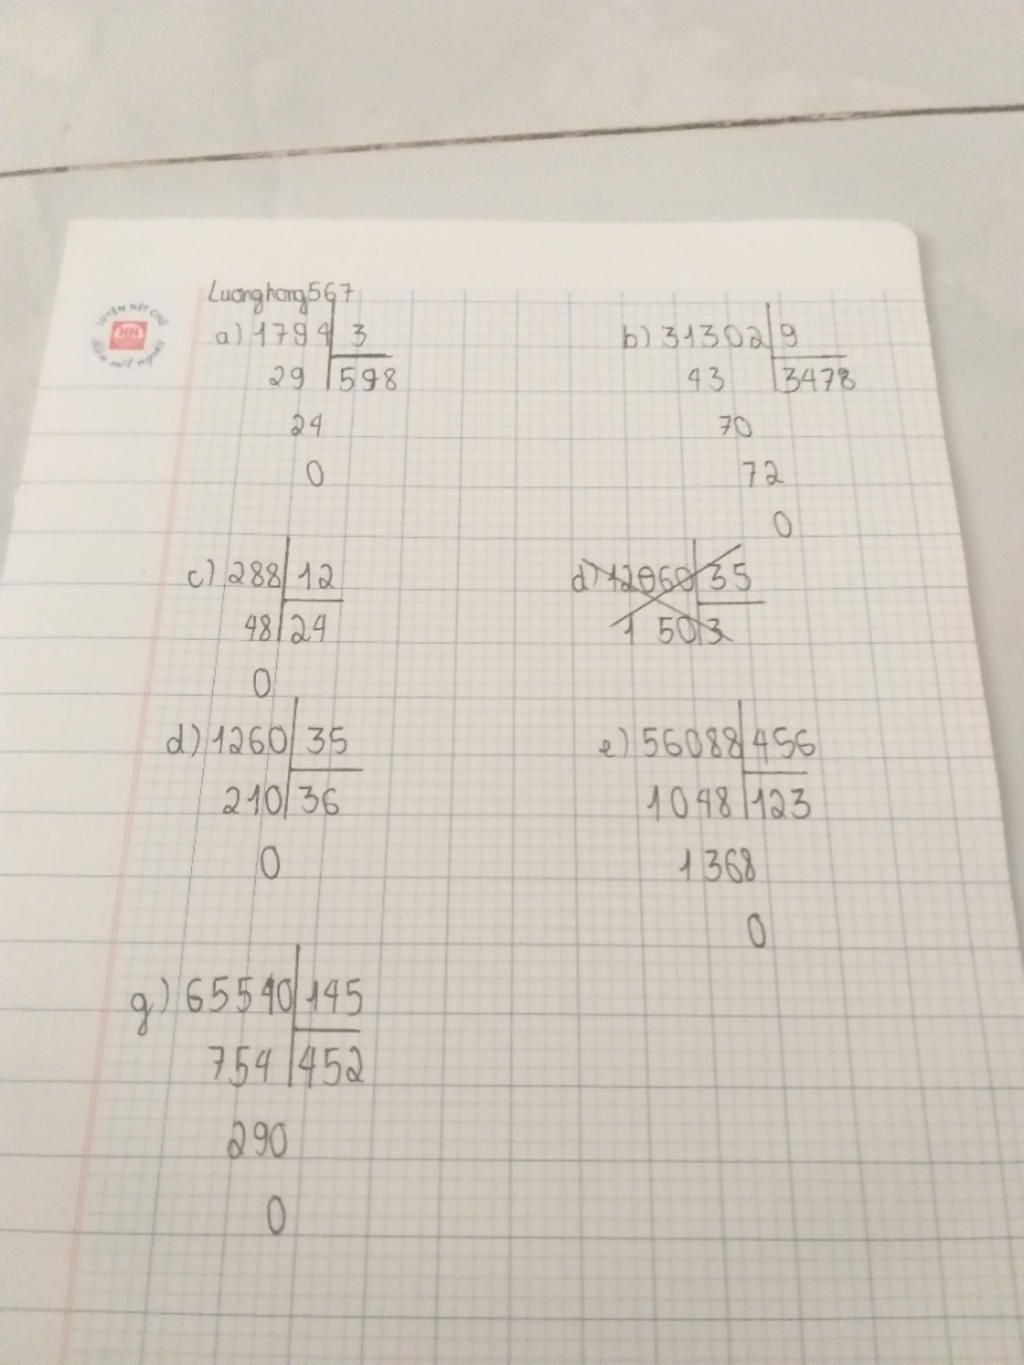 Luonghong567
LUYỆN NÉT CHỮ
HH
Rèn nết người
a) 1794 3
29 598
24
0
b) 31302 9
43 3478
70
72
0
c) 288 12
48 24
0
d) 12060 35
1 50 3
d) 1260 35
210 36
0
e) 56088 456
1048 123
1368
0
g) 65540 145
754 452
290
0